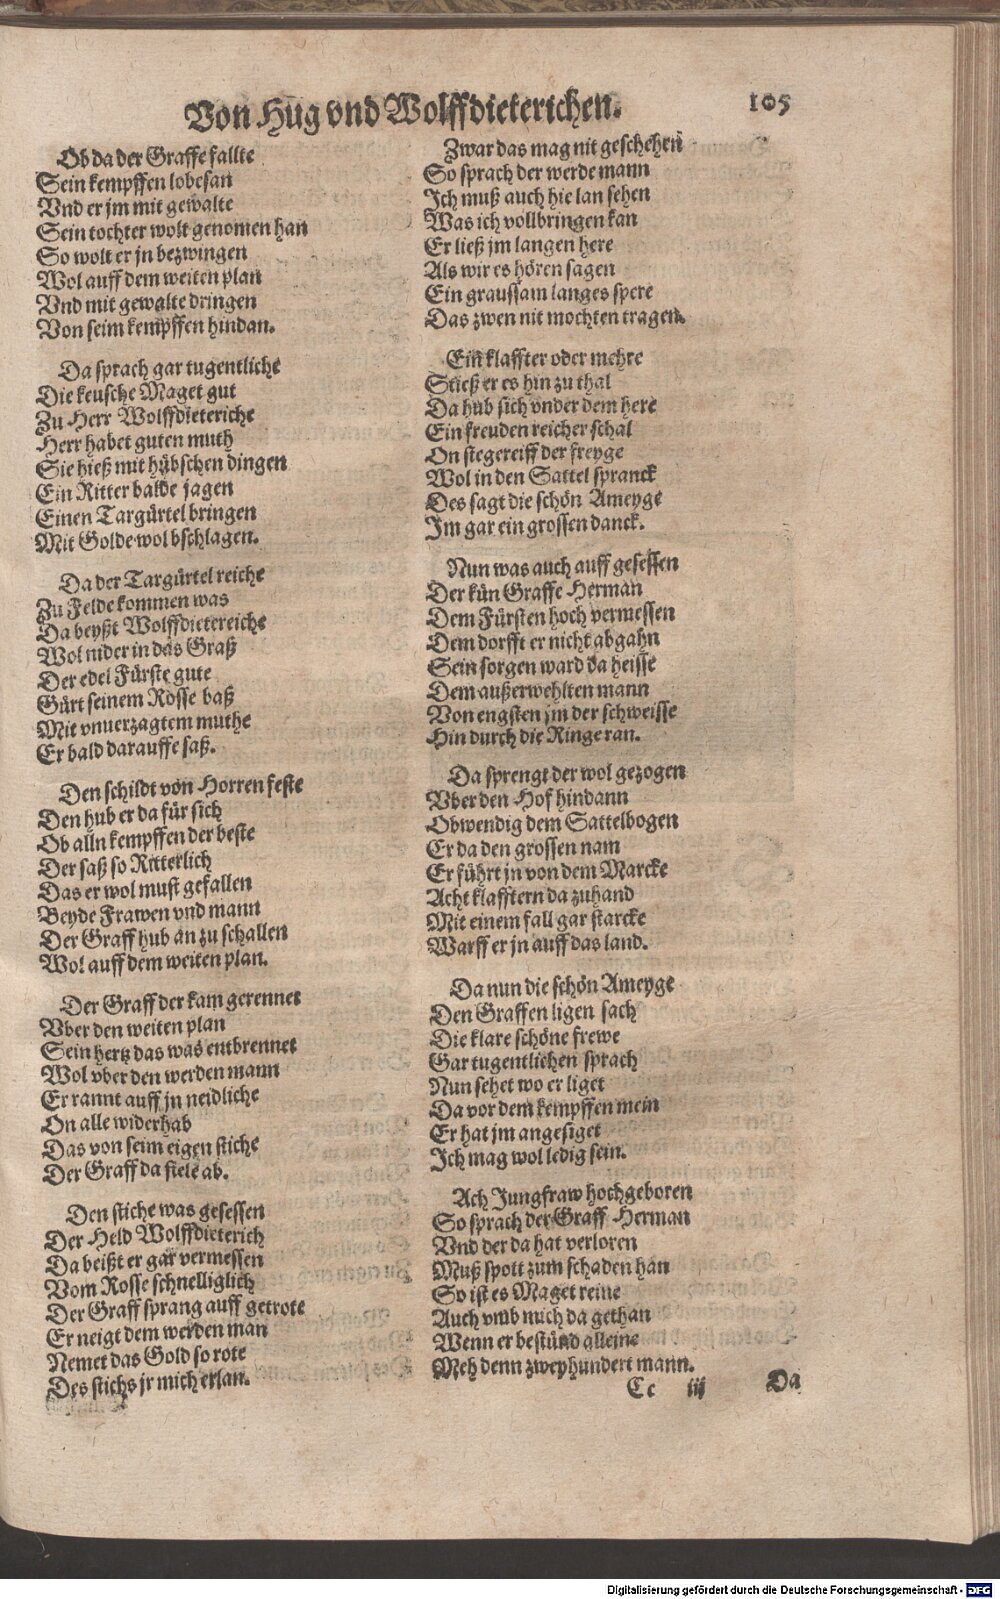 Von Hug vnd Wolffdieterichen. 105
Ob da der Graffe fallte
Sein kempffen lobesan
Vnd er jm mit gewalte
Sein tochter wolt genomen han
So wolt er jn bezwingen
Wol auff dem weiten plan
Vnd mit gewalte dringen
Von seim kempffen hindan.
Da sprach gar tugentliche
Die keusche Maget gut
Zu Herr Wolffdieteriche
Herr habet guten muth
Sie hieß mit hübschen dingen
Ein Ritter balde jagen
Einen Targürtel bringen
Mit Golde wol bschlagen.
Da der Targürtel reiche
Zu Felde kommen was
Da beyßt Wolffdietereiche
Wol nider in das Graß
Der edel Fürste gute
Gürt seinem Rosse baß
Mit vnuerzagtem muthe
Er bald darauffe saß.
Den schildt von Horren feste
Den hub er da für sich
Ob alln kempffen der beste
Der saß so Ritterlich
Das er wol must gefallen
Beyde Frawen vnd mann
Der Graff hub an zu schallen
Wol auff dem weiten plan.
Der Graff der kam gerennet
Vber den weiten plan
Sein hertz das was entbrennet
Wol vber den werden mann
Er rannt auff jn neidliche
On alle widerhab
Das von seim eigen stiche
Der Graff da fiele ab.
Den stiche was gesessen
Der Held Wolffdieterich
Da beißt er gar vermessen
Vom Rosse schnelliglich
Der Graff sprang auff getrote
Er neigt dem werden man
Nemet das Gold so rote
Des stichs jr mich erlan.
Zwar das mag nit geschehen
So sprach der werde mann
Ich muß auch hie lan sehen
Was ich vollbringen kan
Er ließ jm langen here
Als wir es hören sagen
Ein graussam langes spere
Das zwen nit mochten tragen.
Ein klaffter oder mehre
Stieß er es hin zu thal
Da hub sich vnder dem here
Ein freuden reicher schal
On stegereiff der freyge
Wol in den Sattel spranck
Des sagt die schön Ameyge
Im gar ein grossen danck.
Nun was auch auff gesessen
Der kün Graffe Herman
Dem Fürsten hoch vermessen
Dem dorfft er nicht abgahn
Sein sorgen ward da heisse
Dem außerwehlten mann
Von engsten jm der schweisse
Hin durch die Ringe ran.
Da sprengt der wol gezogen
Vber den Hof hindann
Obwendig dem Sattelbogen
Er da den grossen nam
Er führt jn von dem Marcke
Acht klafftern da zuhand
Mit einem fall gar starcke
Warff er jn auff das land.
Da nun die schön Ameyge
Den Graffen ligen sach
Die klare schöne frewe
Gar tugentlichen sprach
Nun sehet wo er liget
Da vor dem kempffen mein
Er hat jm angesiget
Ich mag wol ledig sein.
Ach Jungfraw hochgeboren
So sprach der Graff Herman
Vnd der da hat verloren
Muß spott zum schaden han
So ist es Maget reine
Auch vmb mich da gethan
Wenn er bestünd alleine
Meh denn zweyhundert mann.
Cc iij Da
Digitalisierung gefördert durch die Deutsche Forschungsgemeinschaft - DFG